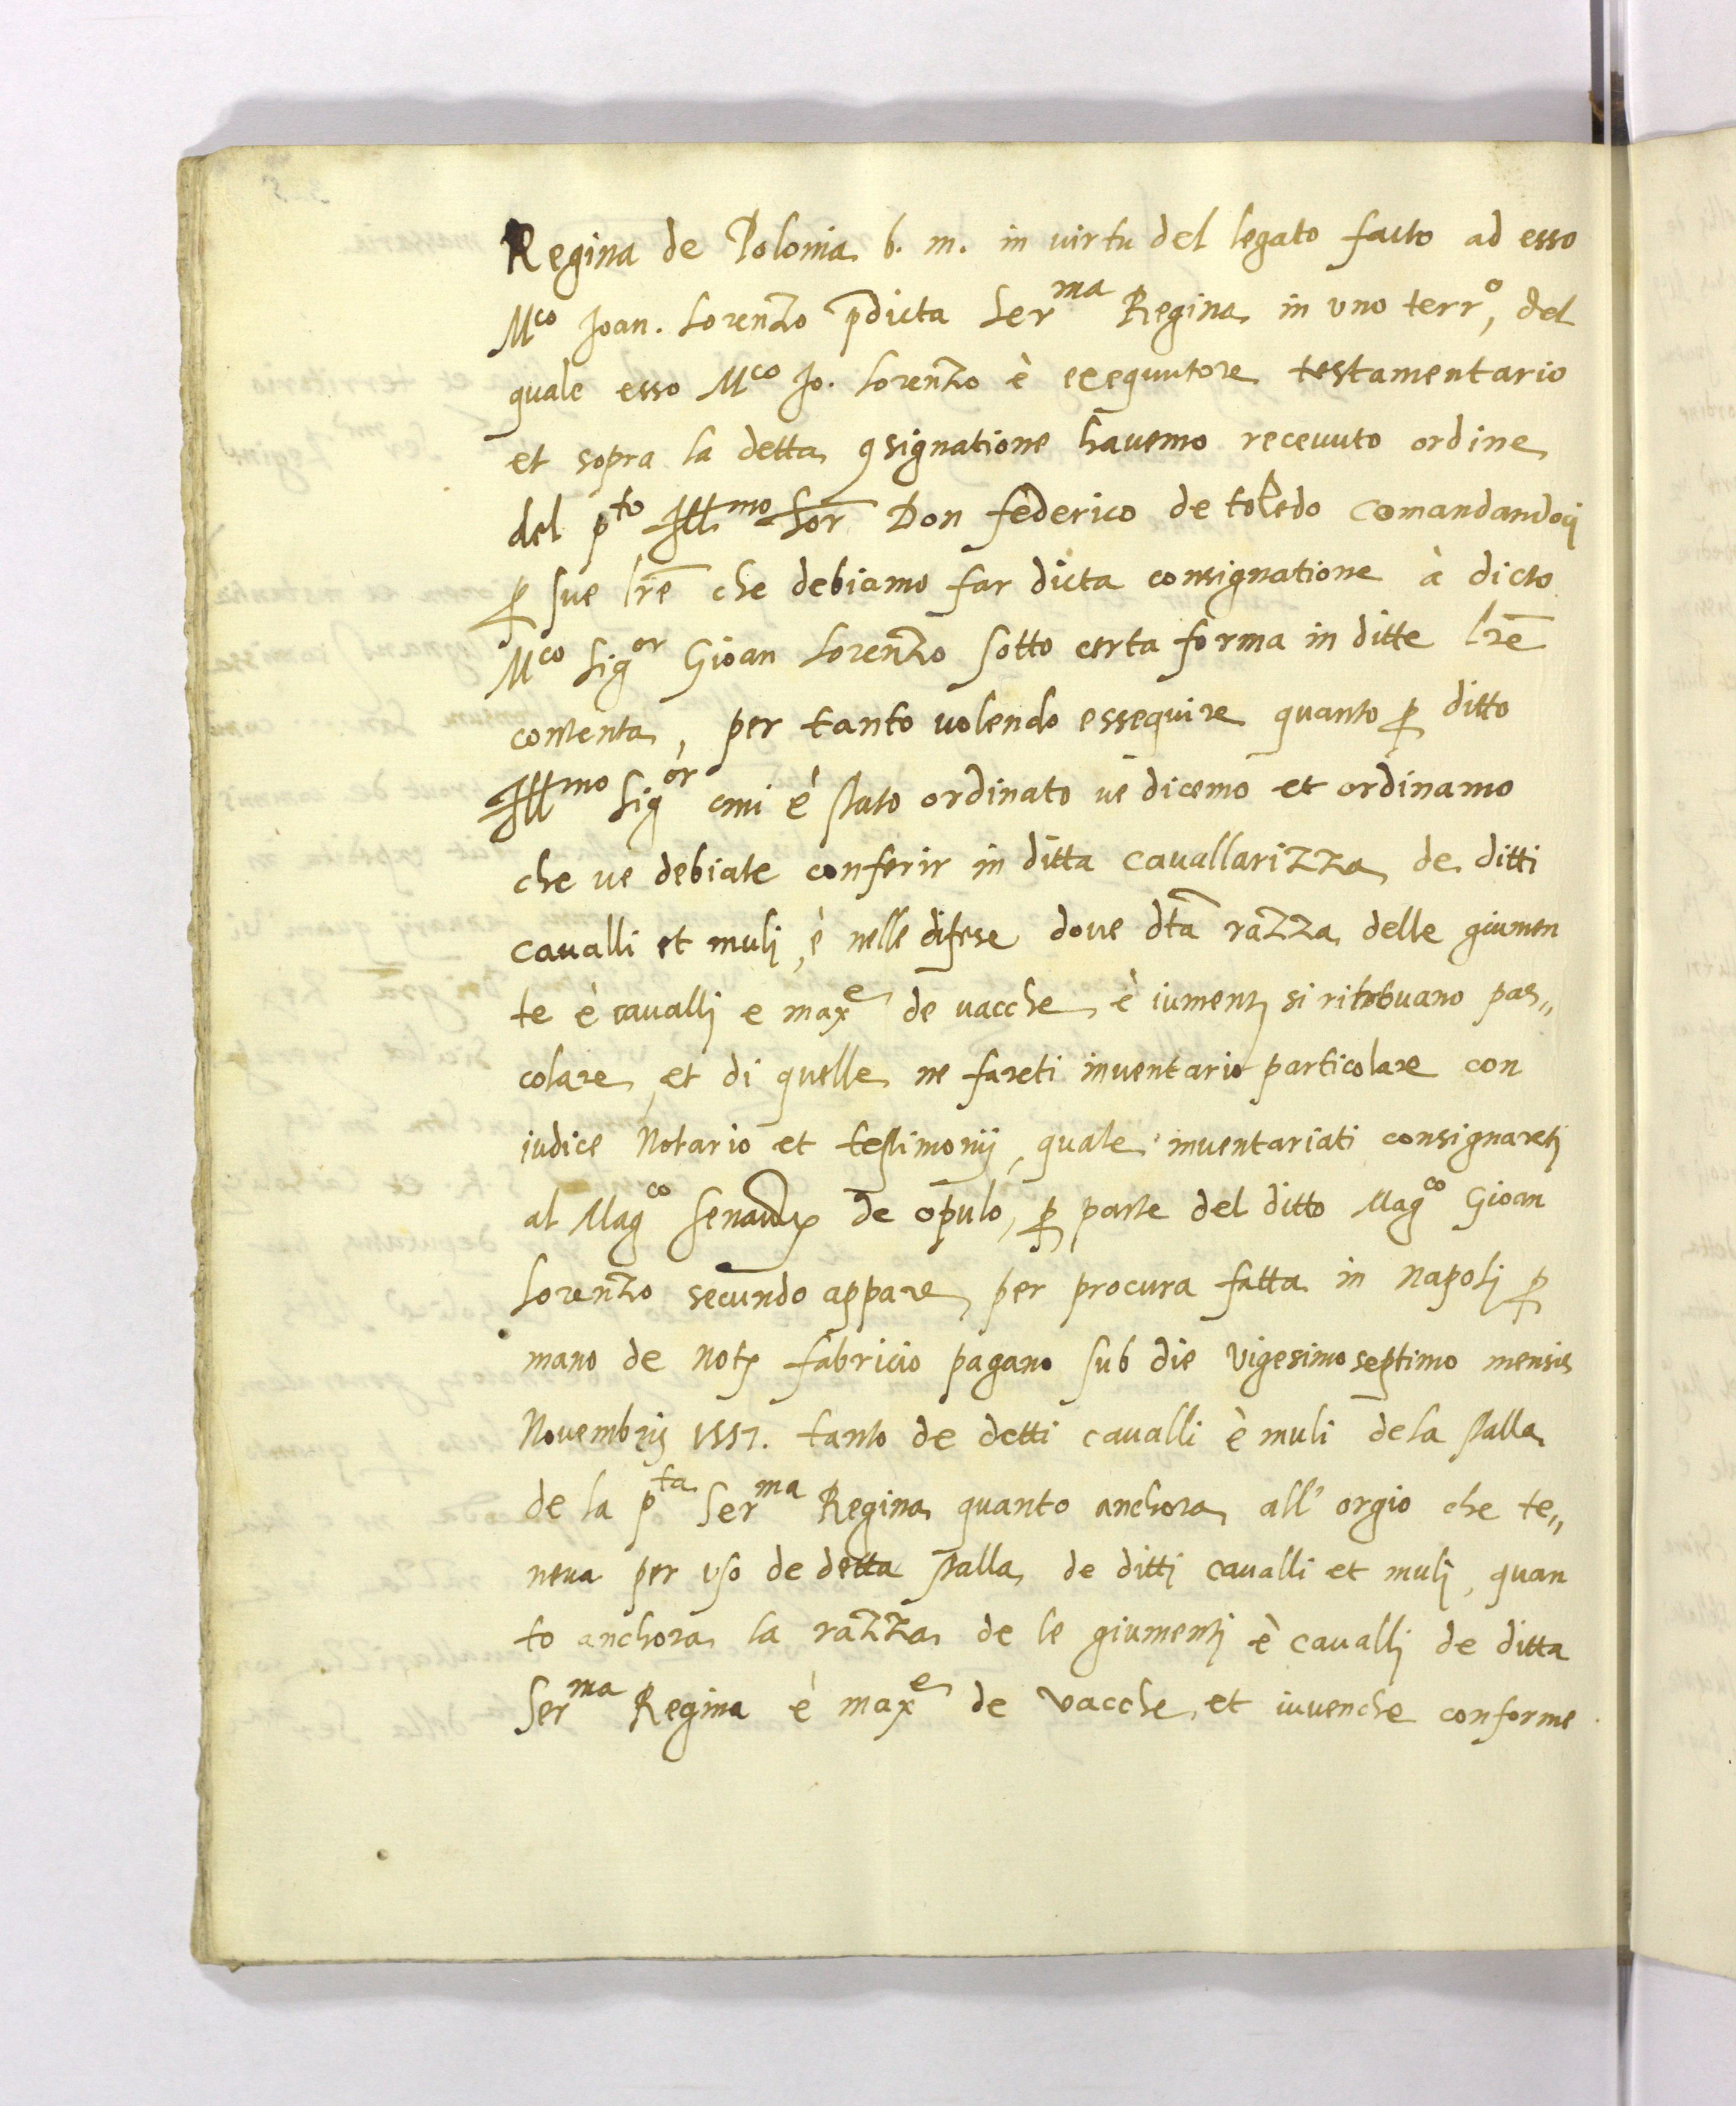 Regina de Polonia b. m. in virtu del legato facto ad esso
M^co Joan. Lorenzo p̄dicta Ser^ma Regina in uno terr^o, del
quale esso M^co Jo. Lorenzo è exequutore testamentario
et sopra la detta ꝯsignatione havemo recevuto ordine
del p^to Ill^mo Sor̄ Don federico de toledo comandandoci
ꝑ sue lr̄e che debiamo far dicta consignatione à dicto
M^co Sig^or Gioan Lorenzo sotto certa forma in ditte lr̄e
contenta, per tanto volendo essequire quanto ꝑ ditto
Ill^mo Sig^or cmi è stato ordinato ve dicemo et ordinamo
che ve debiate conferir in ditta cavallarizza de ditti
cavalli et mulj, è nelle difese dove dt̄a razza delle giumen
te è cavallj e max^e de vacche è iumentj si ritrovano pas„
colare, et di quelle ne fareti inventario particolare con
iudice Notario et testimonij, quale inventariati consignaretj
al Mag^co de opulo, ꝑ parte del ditto Mag^co Gioan
Lorenzo secundo appare per procura fatta in Napolj ꝑ
mano de Not^r fabricio pagano sub die vigesimo septimo mensis
Novembris 1557. tanto de detti cavalli è muli de la stalla
de la p^ta Ser^ma Regina quanto anchora all' orgio che te„
neva per uso de detta stalla de ditti cavalli et mulj, quan
to anchora la razza de le giumentj è cavallj de ditta
Ser^ma Regina è max^e de vacche, et iuvenche conforme